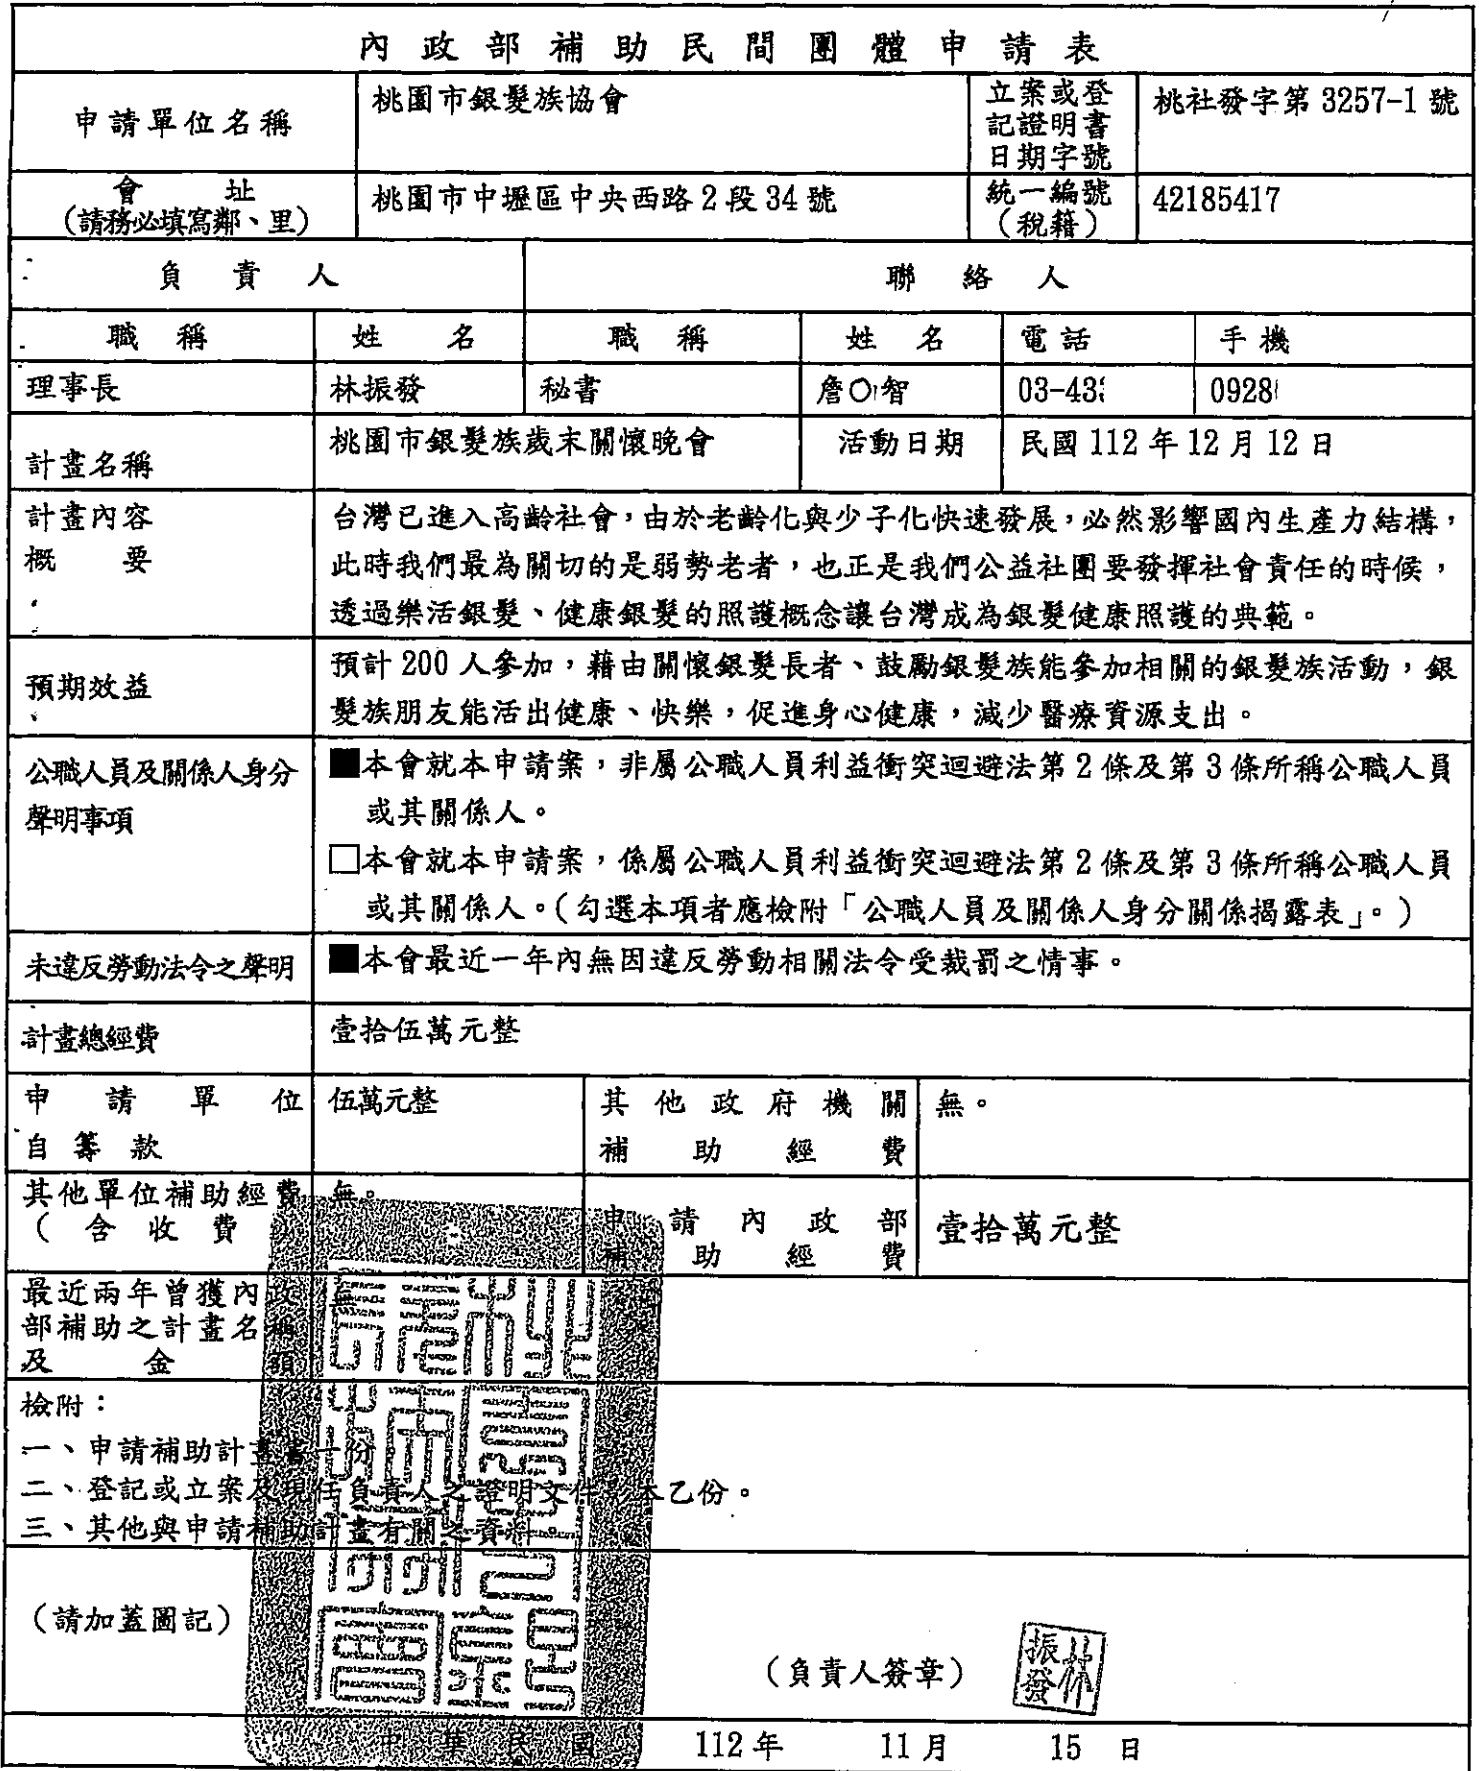 內政部補助民間團體申請表
申請單位名稱
桃園市銀髮族協會
立案或登
記證明書
日期字號
桃社發字第 3257-1 號
會址
(請務必填寫鄰、里)
桃園市中壢區中央西路 2 段 34 號
統一編號
(稅籍)
42185417
負責人
聯絡人
職稱
姓名
職稱
姓名
電話
手機
理事長
林振發
秘書
詹○智
03-43
0928
計畫名稱
桃園市銀髮族歲末關懷晚會
活動日期
民國 112 年 12 月 12 日
計畫內容
概要
台灣已進入高齡社會,由於老齡化與少子化快速發展,必然影響國內生產力結構,
此時我們最為關切的是弱勢老者,也正是我們公益社團要發揮社會責任的時候,
透過樂活銀髮、健康銀髮的照護概念讓台灣成為銀髮健康照護的典範。
預期效益
預計 200 人參加,藉由關懷銀髮長者、鼓勵銀髮族能參加相關的銀髮族活動,銀
髮族朋友能活出健康、快樂,促進身心健康,減少醫療資源支出。
公職人員及關係人身分
聲明事項
■本會就本申請案,非屬公職人員利益衝突迴避法第 2 條及第 3 條所稱公職人員
或其關係人。
□本會就本申請案,係屬公職人員利益衝突迴避法第 2 條及第 3 條所稱公職人員
或其關係人。(勾選本項者應檢附「公職人員及關係人身分關係揭露表」。)
未違反勞動法令之聲明
■本會最近一年內無因違反勞動相關法令受裁罰之情事。
計畫總經費
壹拾伍萬元整
申請單位
自籌款
伍萬元整
其他政府機關
補助經費
無。
其他單位補助經費
(含收費)
無。
申請內政部
補助經費
壹拾萬元整
最近兩年曾獲內政
部補助之計畫名稱
及金額
無
檢附:
一、申請補助計畫書一份
二、登記或立案及現任負責人之證明文件影本乙份。
三、其他與申請補助計畫有關之資料。
(請加蓋圖記)
(負責人簽章)
林振發
中華民國 112 年 11 月 15 日